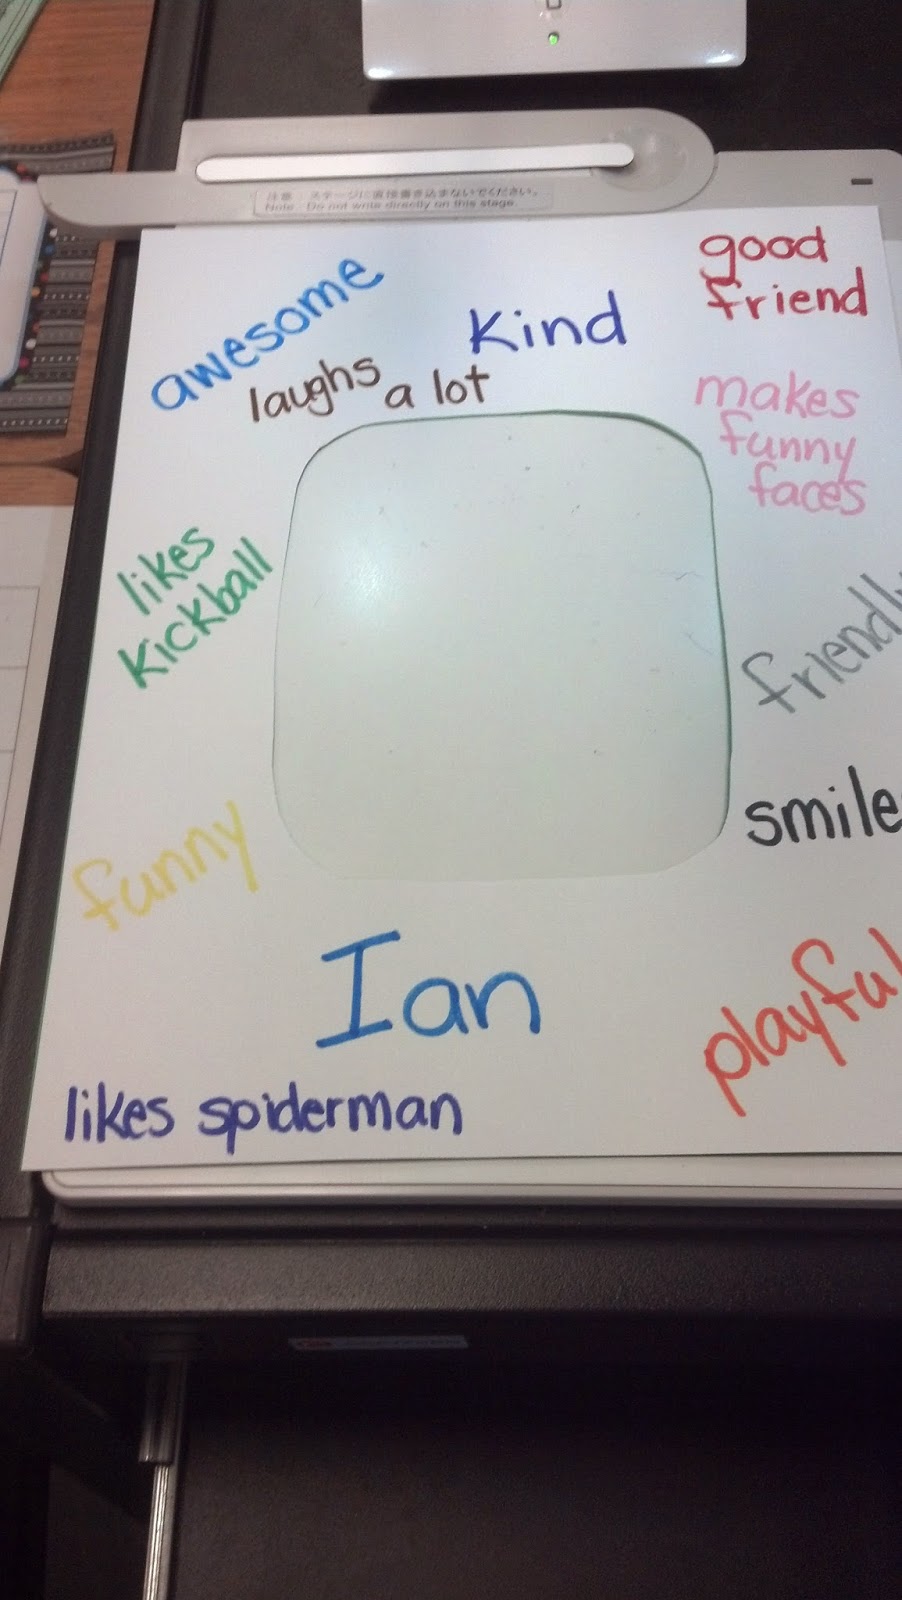 注意 : ステージに直接書き込まないでください。
Note : Do not write directly on this stage.
good
friend
awesome
kind
laughs
a lot
makes
funny
faces
likes
kickball
friendly
smile
funny
Ian
playful
likes spiderman